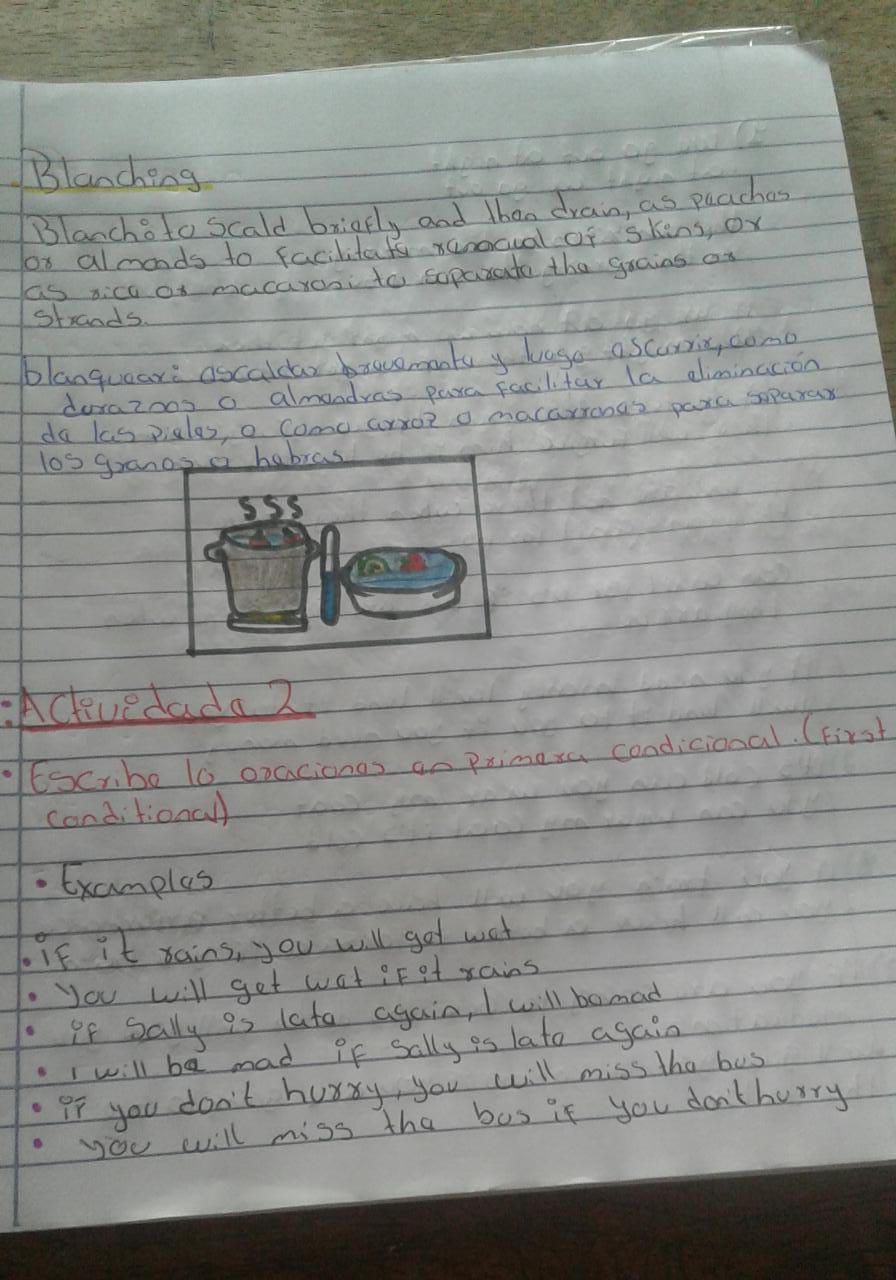 Blanching
Blanch: to scald briefly and then drain, as peaches
or almonds to facilitate removal of skins, or
as rice or macaroni to separate the grains or
strands.
blanquear: escaldar brevemente y luego escurrir, como
duraznos o almendras para facilitar la eliminación
de las pieles, o como arroz o macarrones para separar
los granos o hebras
SSS
Actividada 2
Escribe 10 oraciones en primera condicional. (First
conditional)
Examples
if it rains, you will get wet
you will get wet if it rains
if Sally is late again, I will be mad
I will be mad if Sally is late again
if you don't hurry, you will miss the bus
you will miss the bus if you don't hurry